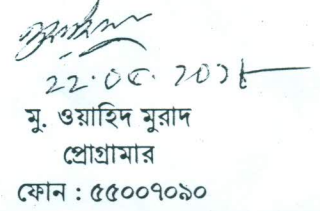 22.05.2025
মু. ওয়াহিদ মুরাদ
প্রোগ্রামার
ফোন : ৫৫০০৭০৯০